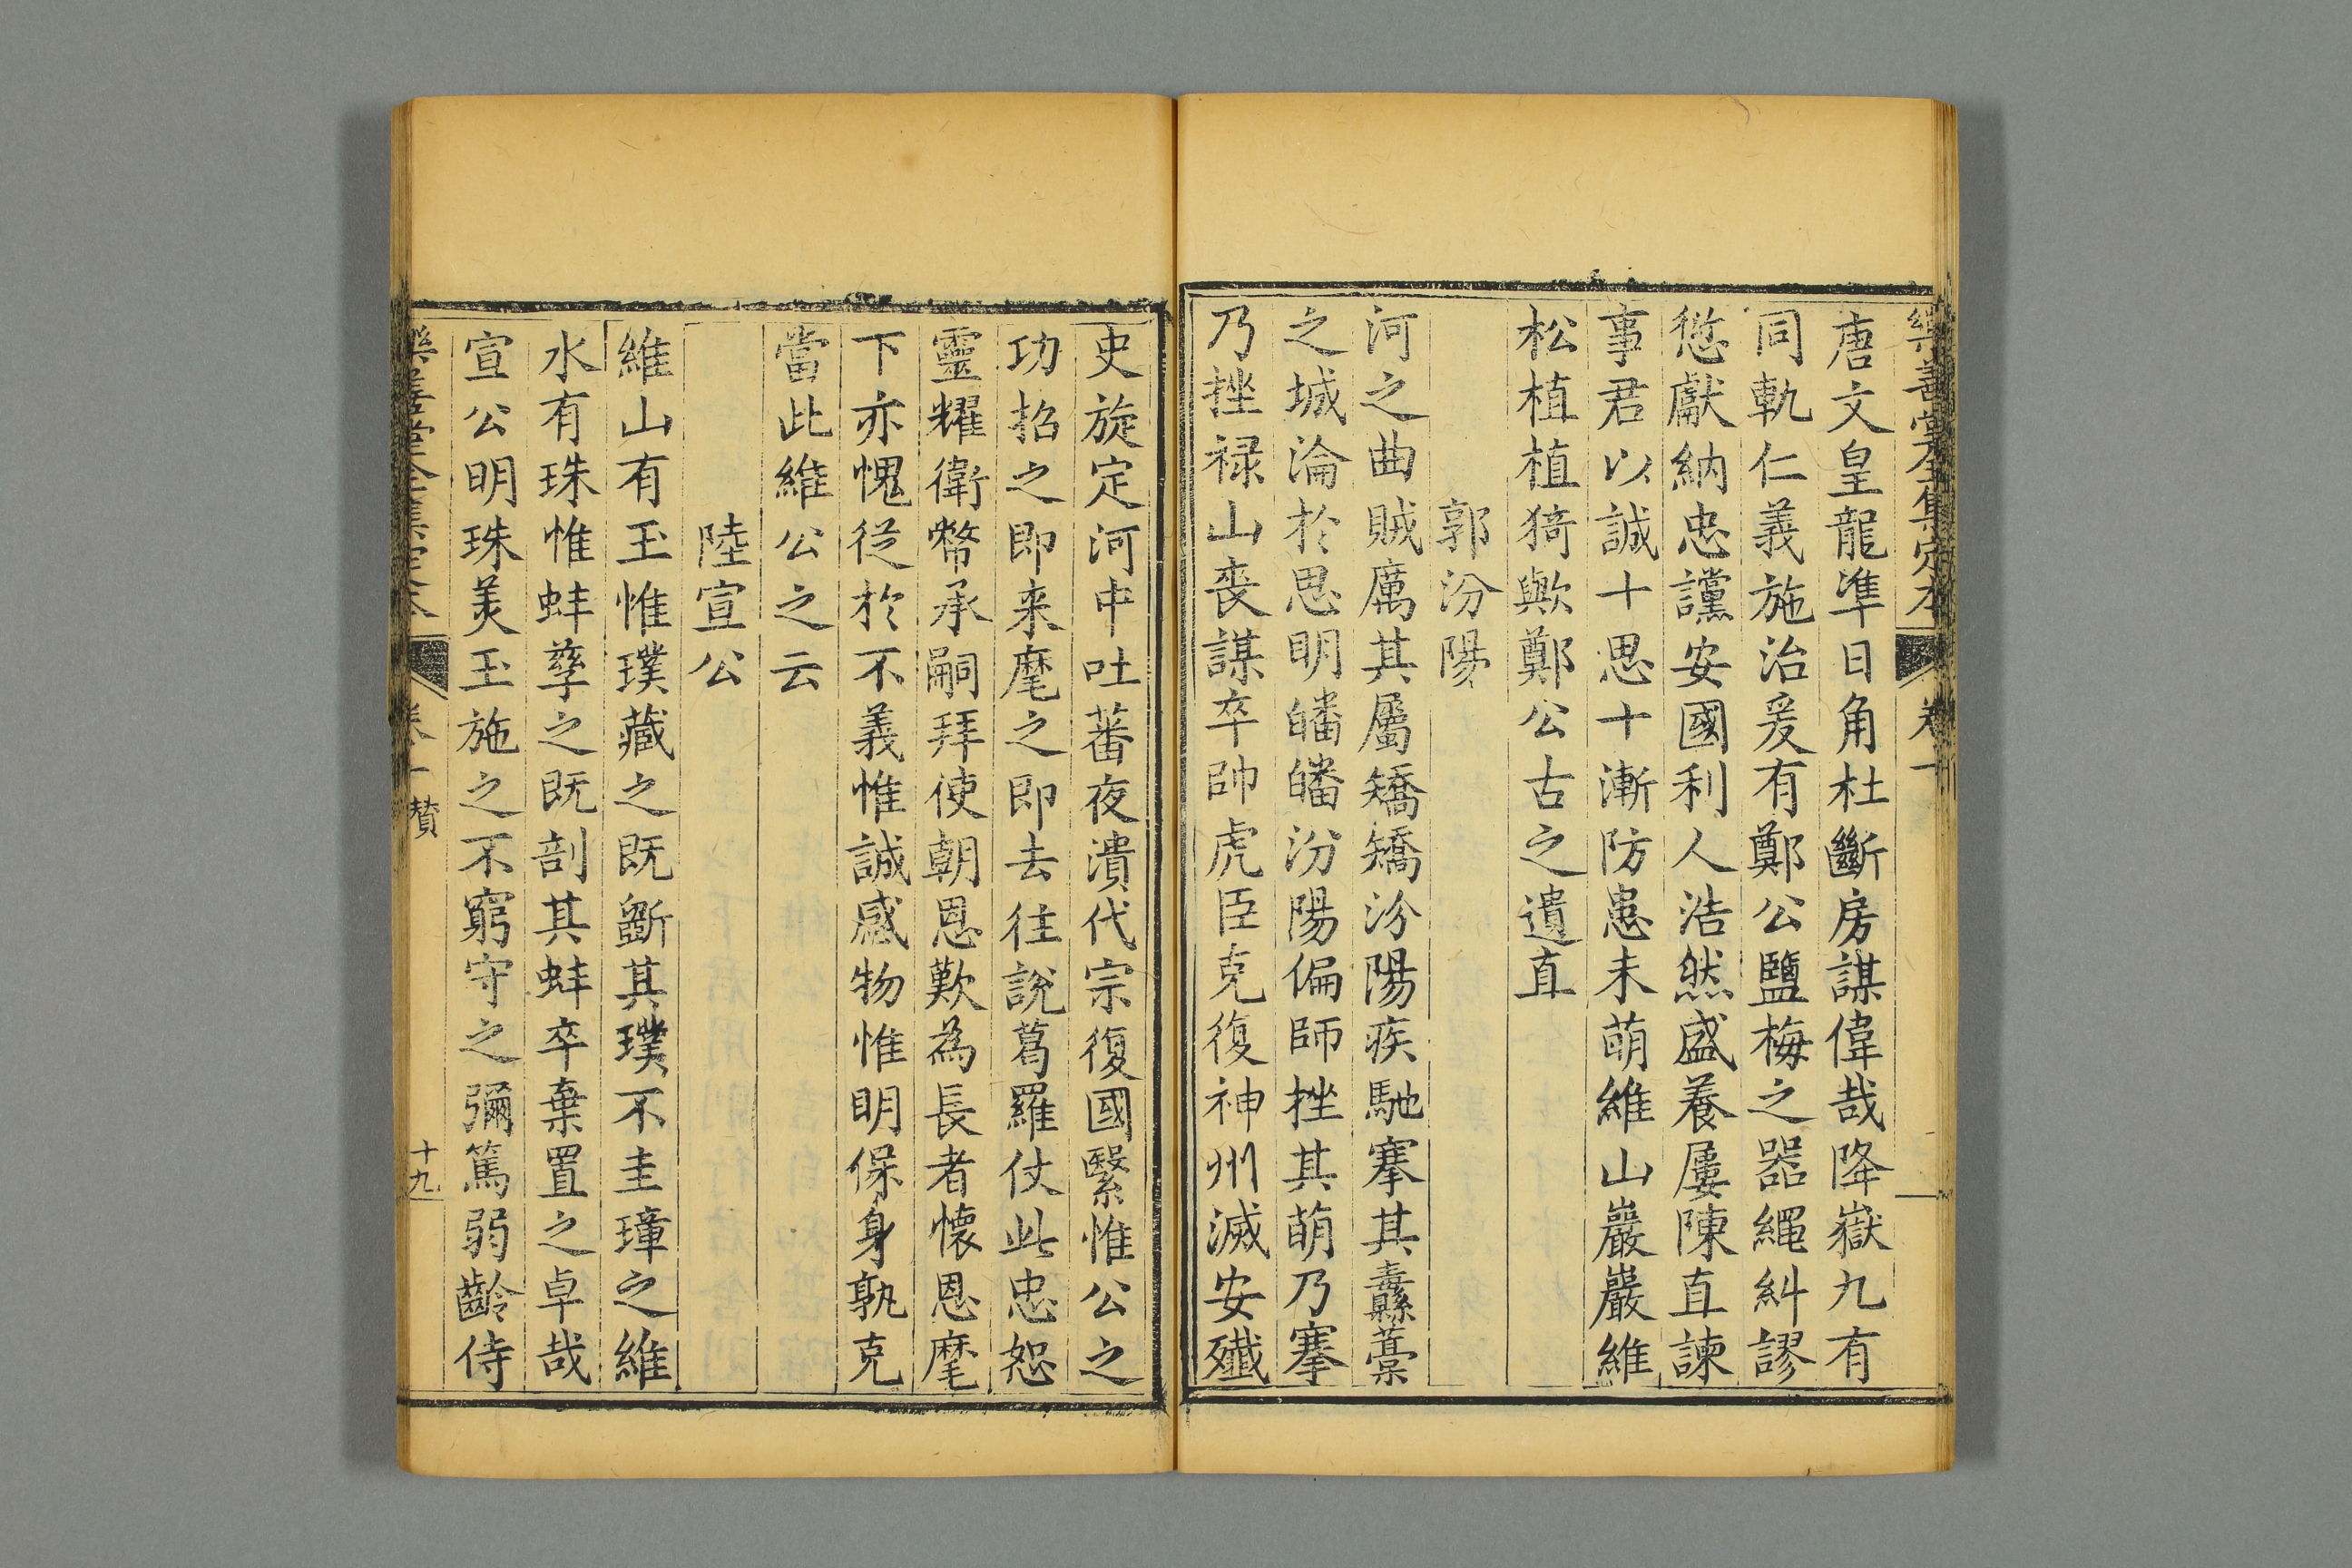 樂善堂全集定本 卷十
唐文皇龍準日角杜斷房謀偉哉降嶽九有
同軌仁義施治爰有鄭公鹽梅之器繩糾謬
愆獻納忠讜安國利人浩然盛養屢陳直諫
事君以誠十思十漸防患未萌維山巖巖維
松植植猗歟鄭公古之遺直
郭汾陽
河之曲賊厲其屬矯矯汾陽疾馳搴其纛藁
之城淪於思明皤皤汾陽偏師挫其萌乃搴
乃挫祿山喪謀卒帥虎臣克復神州滅安殲
史旋定河中吐蕃夜潰代宗復國繄惟公之
功招之即来麾之即去往說葛羅仗此忠恕
靈耀衛幣承嗣拜使朝恩歎為長者懷恩麾
下亦愧從於不義惟誠感物惟明保身孰克
當此維公之云
陸宣公
維山有玉惟璞藏之既斲其璞不圭璋之維
水有珠惟蚌孳之既剖其蚌卒棄置之卓哉
宣公明珠美玉施之不窮守之彌篤弱齡侍
樂善堂全集定本 卷十 贊 十九